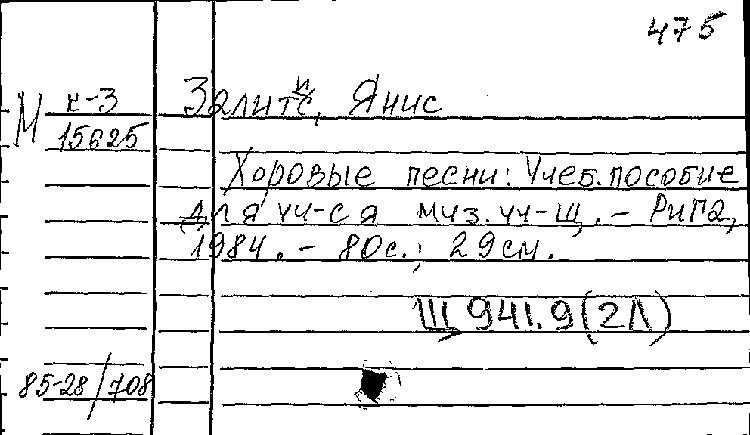 475
М к-3
15625
Залитис, Янис
Хоровые песни: Учеб. пособие
для уч-ся муз. уч-щ. - Рига,
1984. - 80с.; 29см.
Щ 941.9(2Л)
85-28/708